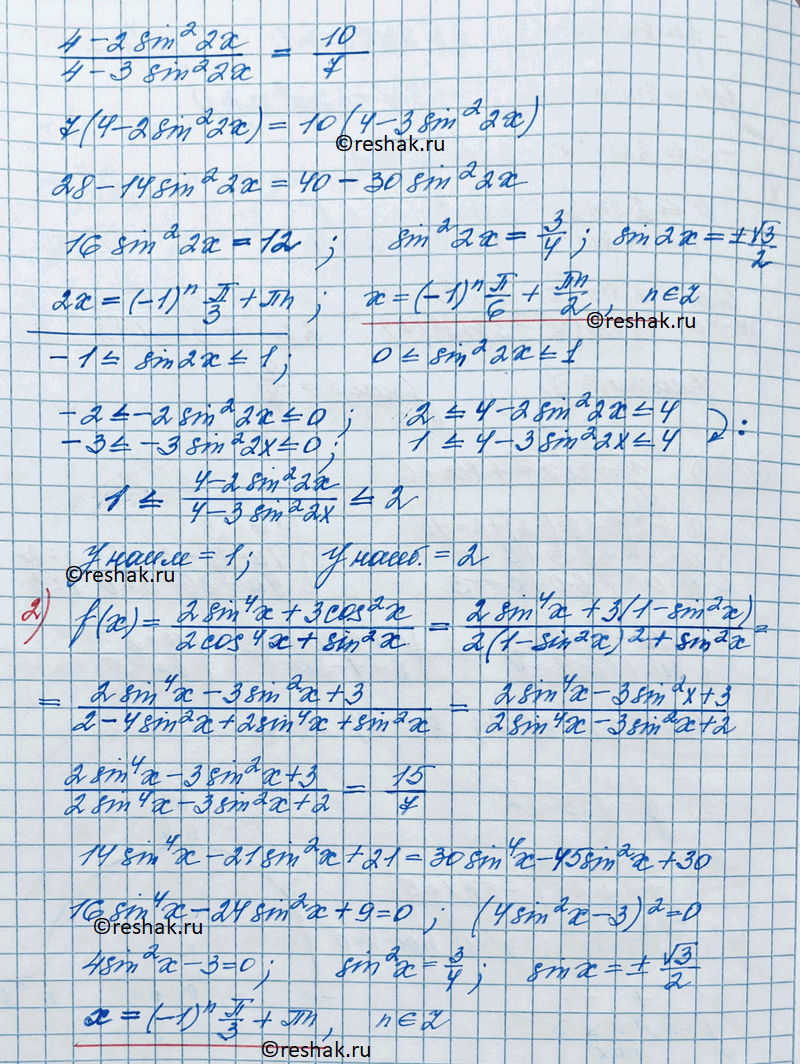 (4 – 2 sin² 2x) / (4 – 3 sin² 2x) = 10/7
7(4 – 2 sin² 2x) = 10(4 – 3 sin² 2x)
©reshak.ru
28 – 14 sin² 2x = 40 – 30 sin² 2x
16 sin² 2x = 12 ; sin² 2x = 3/4 ; sin 2x = ± √3/2
2x = (-1)ⁿ π/3 + πn ; x = (-1)ⁿ π/6 + πn/2 , n ∈ Z
©reshak.ru
-1 ≤ sin 2x ≤ 1 ; 0 ≤ sin² 2x ≤ 1
-2 ≤ -2 sin² 2x ≤ 0 ; 2 ≤ 4 – 2 sin² 2x ≤ 4
-3 ≤ -3 sin² 2x ≤ 0 ; 1 ≤ 4 – 3 sin² 2x ≤ 4 :
1 ≤ (4 – 2 sin² 2x) / (4 – 3 sin² 2x) ≤ 2
y наим = 1 ; y наиб. = 2
©reshak.ru
2) f(x) = (2 sin⁴x + 3 cos²x) / (2 cos⁴x + sin²x) = (2 sin⁴x + 3(1 – sin²x)) / (2(1 – sin²x)² + sin²x) =
= (2 sin⁴x – 3 sin²x + 3) / (2 – 4 sin²x + 2 sin⁴x + sin²x) = (2 sin⁴x – 3 sin²x + 3) / (2 sin⁴x – 3 sin²x + 2)
(2 sin⁴x – 3 sin²x + 3) / (2 sin⁴x – 3 sin²x + 2) = 15/7
14 sin⁴x – 21 sin²x + 21 = 30 sin⁴x – 45 sin²x + 30
16 sin⁴x – 24 sin²x + 9 = 0 ; (4 sin²x – 3)² = 0
©reshak.ru
4 sin²x – 3 = 0 ; sin²x = 3/4 ; sin x = ± √3/2
x = (-1)ⁿ π/3 + πn , n ∈ Z
©reshak.ru